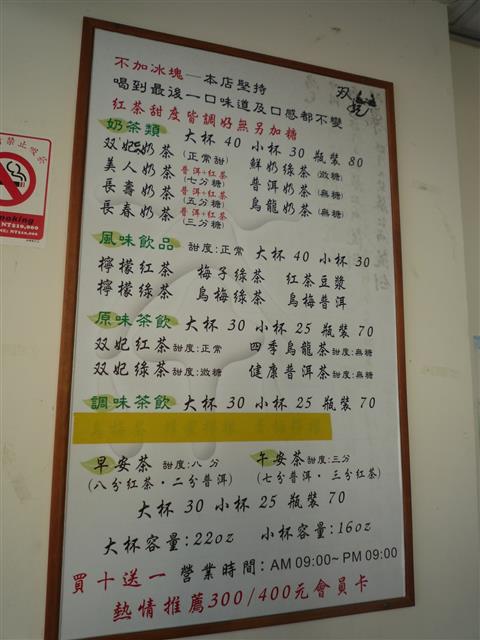 不加冰塊—本店堅持
双妃
喝到最後一口味道及口感都不變
紅茶甜度皆調好無另加糖
奶茶類 大杯 40 小杯 30 瓶裝 80
双妃奶茶(正常甜) 鮮奶綠茶(微糖)
美人奶茶 普洱+紅茶(七分糖) 普洱奶茶(無糖)
長壽奶茶 普洱+紅茶(五分糖) 烏龍奶茶(無糖)
長春奶茶 普洱+紅茶(三分糖)
風味飲品 甜度:正常 大杯 40 小杯 30
檸檬紅茶 梅子綠茶 紅茶豆漿
檸檬綠茶 烏梅綠茶 烏梅普洱
原味茶飲 大杯 30 小杯 25 瓶裝 70
双妃紅茶 甜度:正常 四季烏龍茶 甜度:無糖
双妃綠茶 甜度:微糖 健康普洱茶 甜度:無糖
調味茶飲 大杯 30 小杯 25 瓶裝 70
早安茶 甜度:八分 午安茶 甜度:三分
(八分紅茶·二分普洱) (七分普洱·三分紅茶)
大杯 30 小杯 25 瓶裝 70
大杯容量:22oz 小杯容量:16oz
買十送一 營業時間:AM 09:00~PM 09:00
熱情推薦300/400元會員卡
禁止吸
moking
NT$10,000